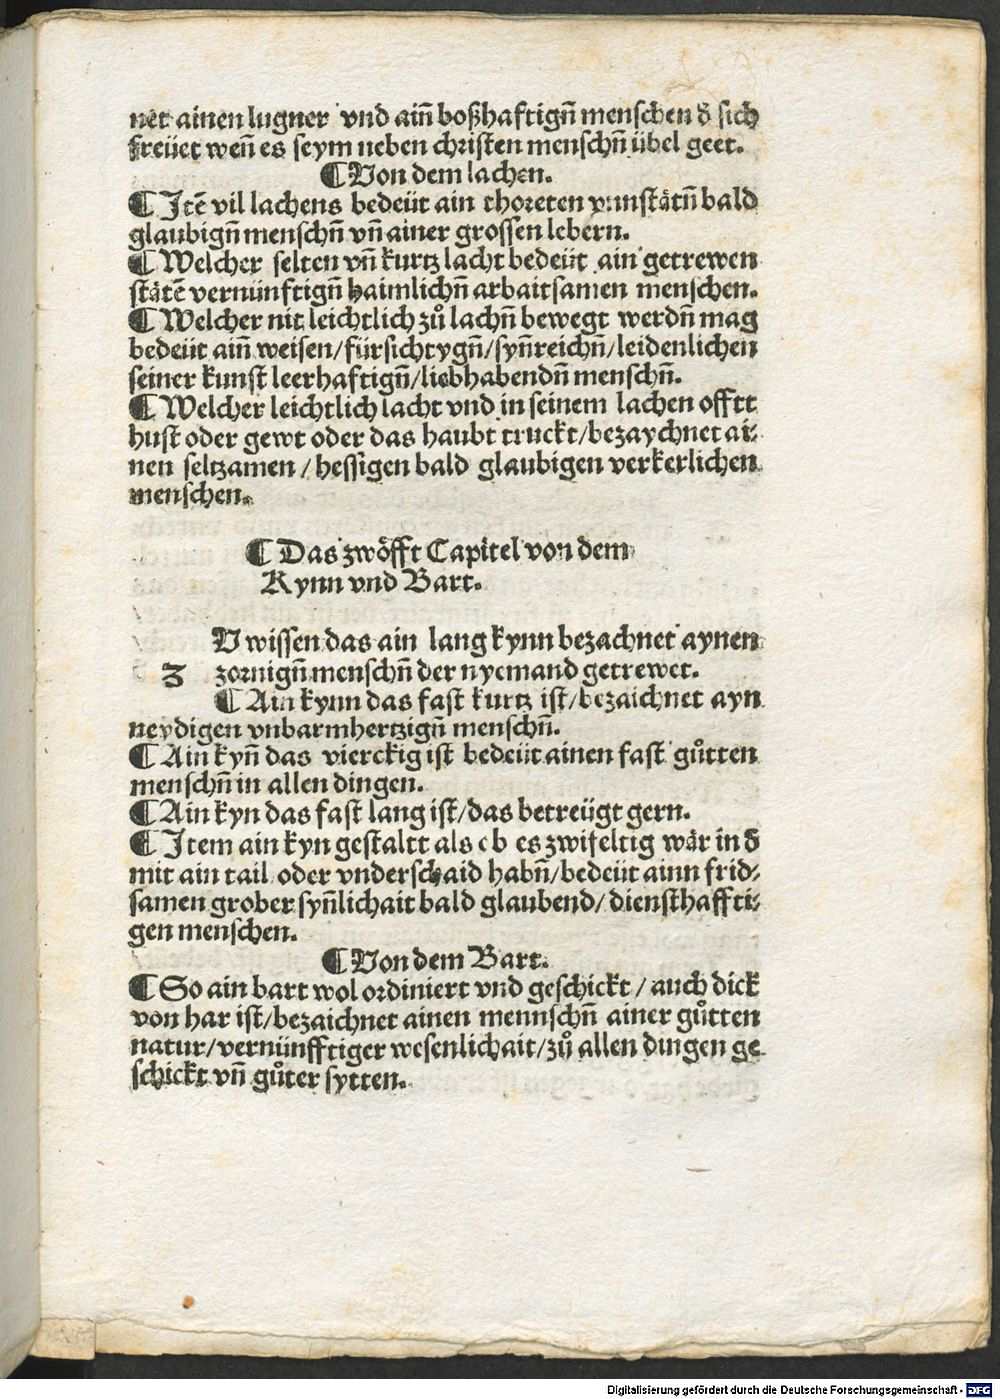 net ainen lugner vnd aiñ boßhaftigñ menschen d̄ sich
freüet weñ es seym neben christen menschñ übel geet.
¶ Von dem lachen.
¶ Itē vil lachens bedeüt ain thoreten vnnstätñ bald
glaubigñ menschñ vñ ainer grossen lebern.
¶ Welcher selten vñ kurtz lacht bedeüt ain getrewen
stätē vernünftigñ haimlichñ arbaitsamen menschen.
¶ Welcher nit leichtlich zů lachñ bewegt werdñ mag
bedeüt aiñ weisen/fürsichtygñ/syñreichñ/leidenlichen
seiner kunst leerhaftigñ/liebhabendñ menschñ.
¶ Welcher leichtlich lacht vnd in seinem lachen offtt
hust oder gewt oder das haubt truckt/bezaychnet ai⸗
nen seltzamen/hessigen bald glaubigen verkerlichen
menschen.
¶ Das zwöfft Capitel von dem
Kynn vnd Bart.
V wissen das ain lang kynn bezachnet aynen
z zornigñ menschñ der nyemand getrewet.
¶ Ain kynn das fast kurtz ist/bezaichnet ayn
neydigen vnbarmhertzigñ menschñ.
¶ Ain kyñ das vierckig ist bedeüt ainen fast gůtten
menschñ in allen dingen.
¶ Ain kyn das fast lang ist/das betreügt gern.
¶ Item ain kyn gestaltt als ob es zwifeltig wär in d̄
mit ain tail oder vnderschaid habñ/bedeüt ainn frid⸗
samen grober syñlichait bald glaubend/diensthaffti⸗
gen menschen.
¶ Von dem Bart.
¶ So ain bart wol ordiniert vnd geschickt/auch dick
von har ist/bezaichnet ainen mennschñ ainer gůtten
natur/vernünfftiger wesenlichait/zů allen dingen ge
schickt vñ gůter sytten.
Digitalisierung gefördert durch die Deutsche Forschungsgemeinschaft - DFG